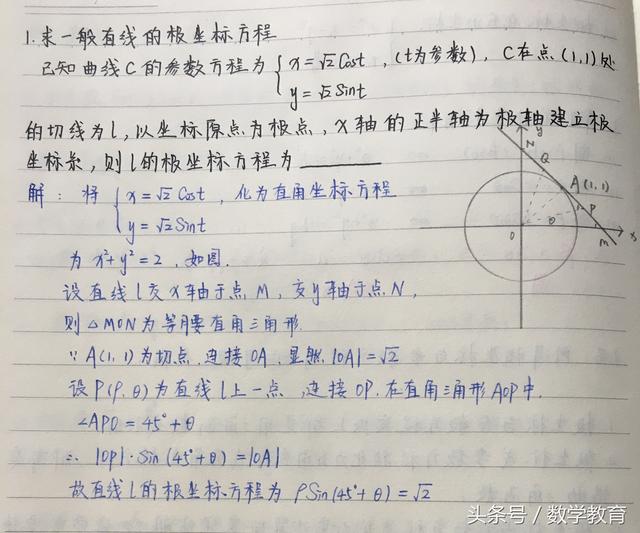 1.求一般直线的极坐标方程
已知曲线C的参数方程为{x=√2Cost，(t为参数)，C在点(1,1)处
y=√2Sint
的切线为l，以坐标原点为极点，x轴的正半轴为极轴建立极
坐标系，则l的极坐标方程为________
解：将{x=√2Cost，化为直角坐标方程
y=√2Sint
为x²+y²=2，如图.
设直线l交x轴于点M，交y轴于点N，
则△MON为等腰直角三角形.
∵A(1,1)为切点，连接OA，显然|OA|=√2
设P(ρ,θ)为直线l上一点，连接OP.在直角三角形AOP中.
∠APO=45°+θ
∴|OP|·Sin(45°+θ)=|OA|
故直线l的极坐标方程为ρSin(45°+θ)=√2
y
N
Q
A(1,1)
P
O
θ
M
x
头条号/数学教育